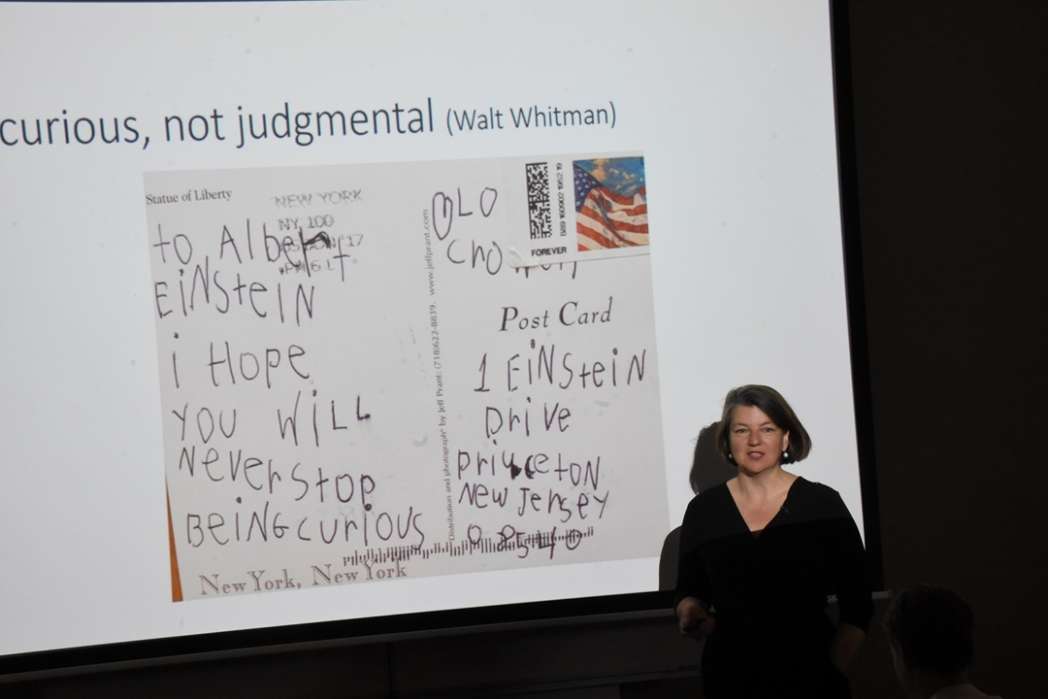 curious, not judgmental (Walt Whitman)
Statue of Liberty
NEW YORK
NY 100
to Albert
EiNSteIN
i Hope
YOU WiLL
Never Stop
BeiNG curiOUS
New York, New York
Distribution and photograph by Jeff Prant: (718)622-8839. www.jeffprant.com
OLO
FOREVER
Post Card
1 EiNSteiN
Drive
priNceton
New Jersey
08540